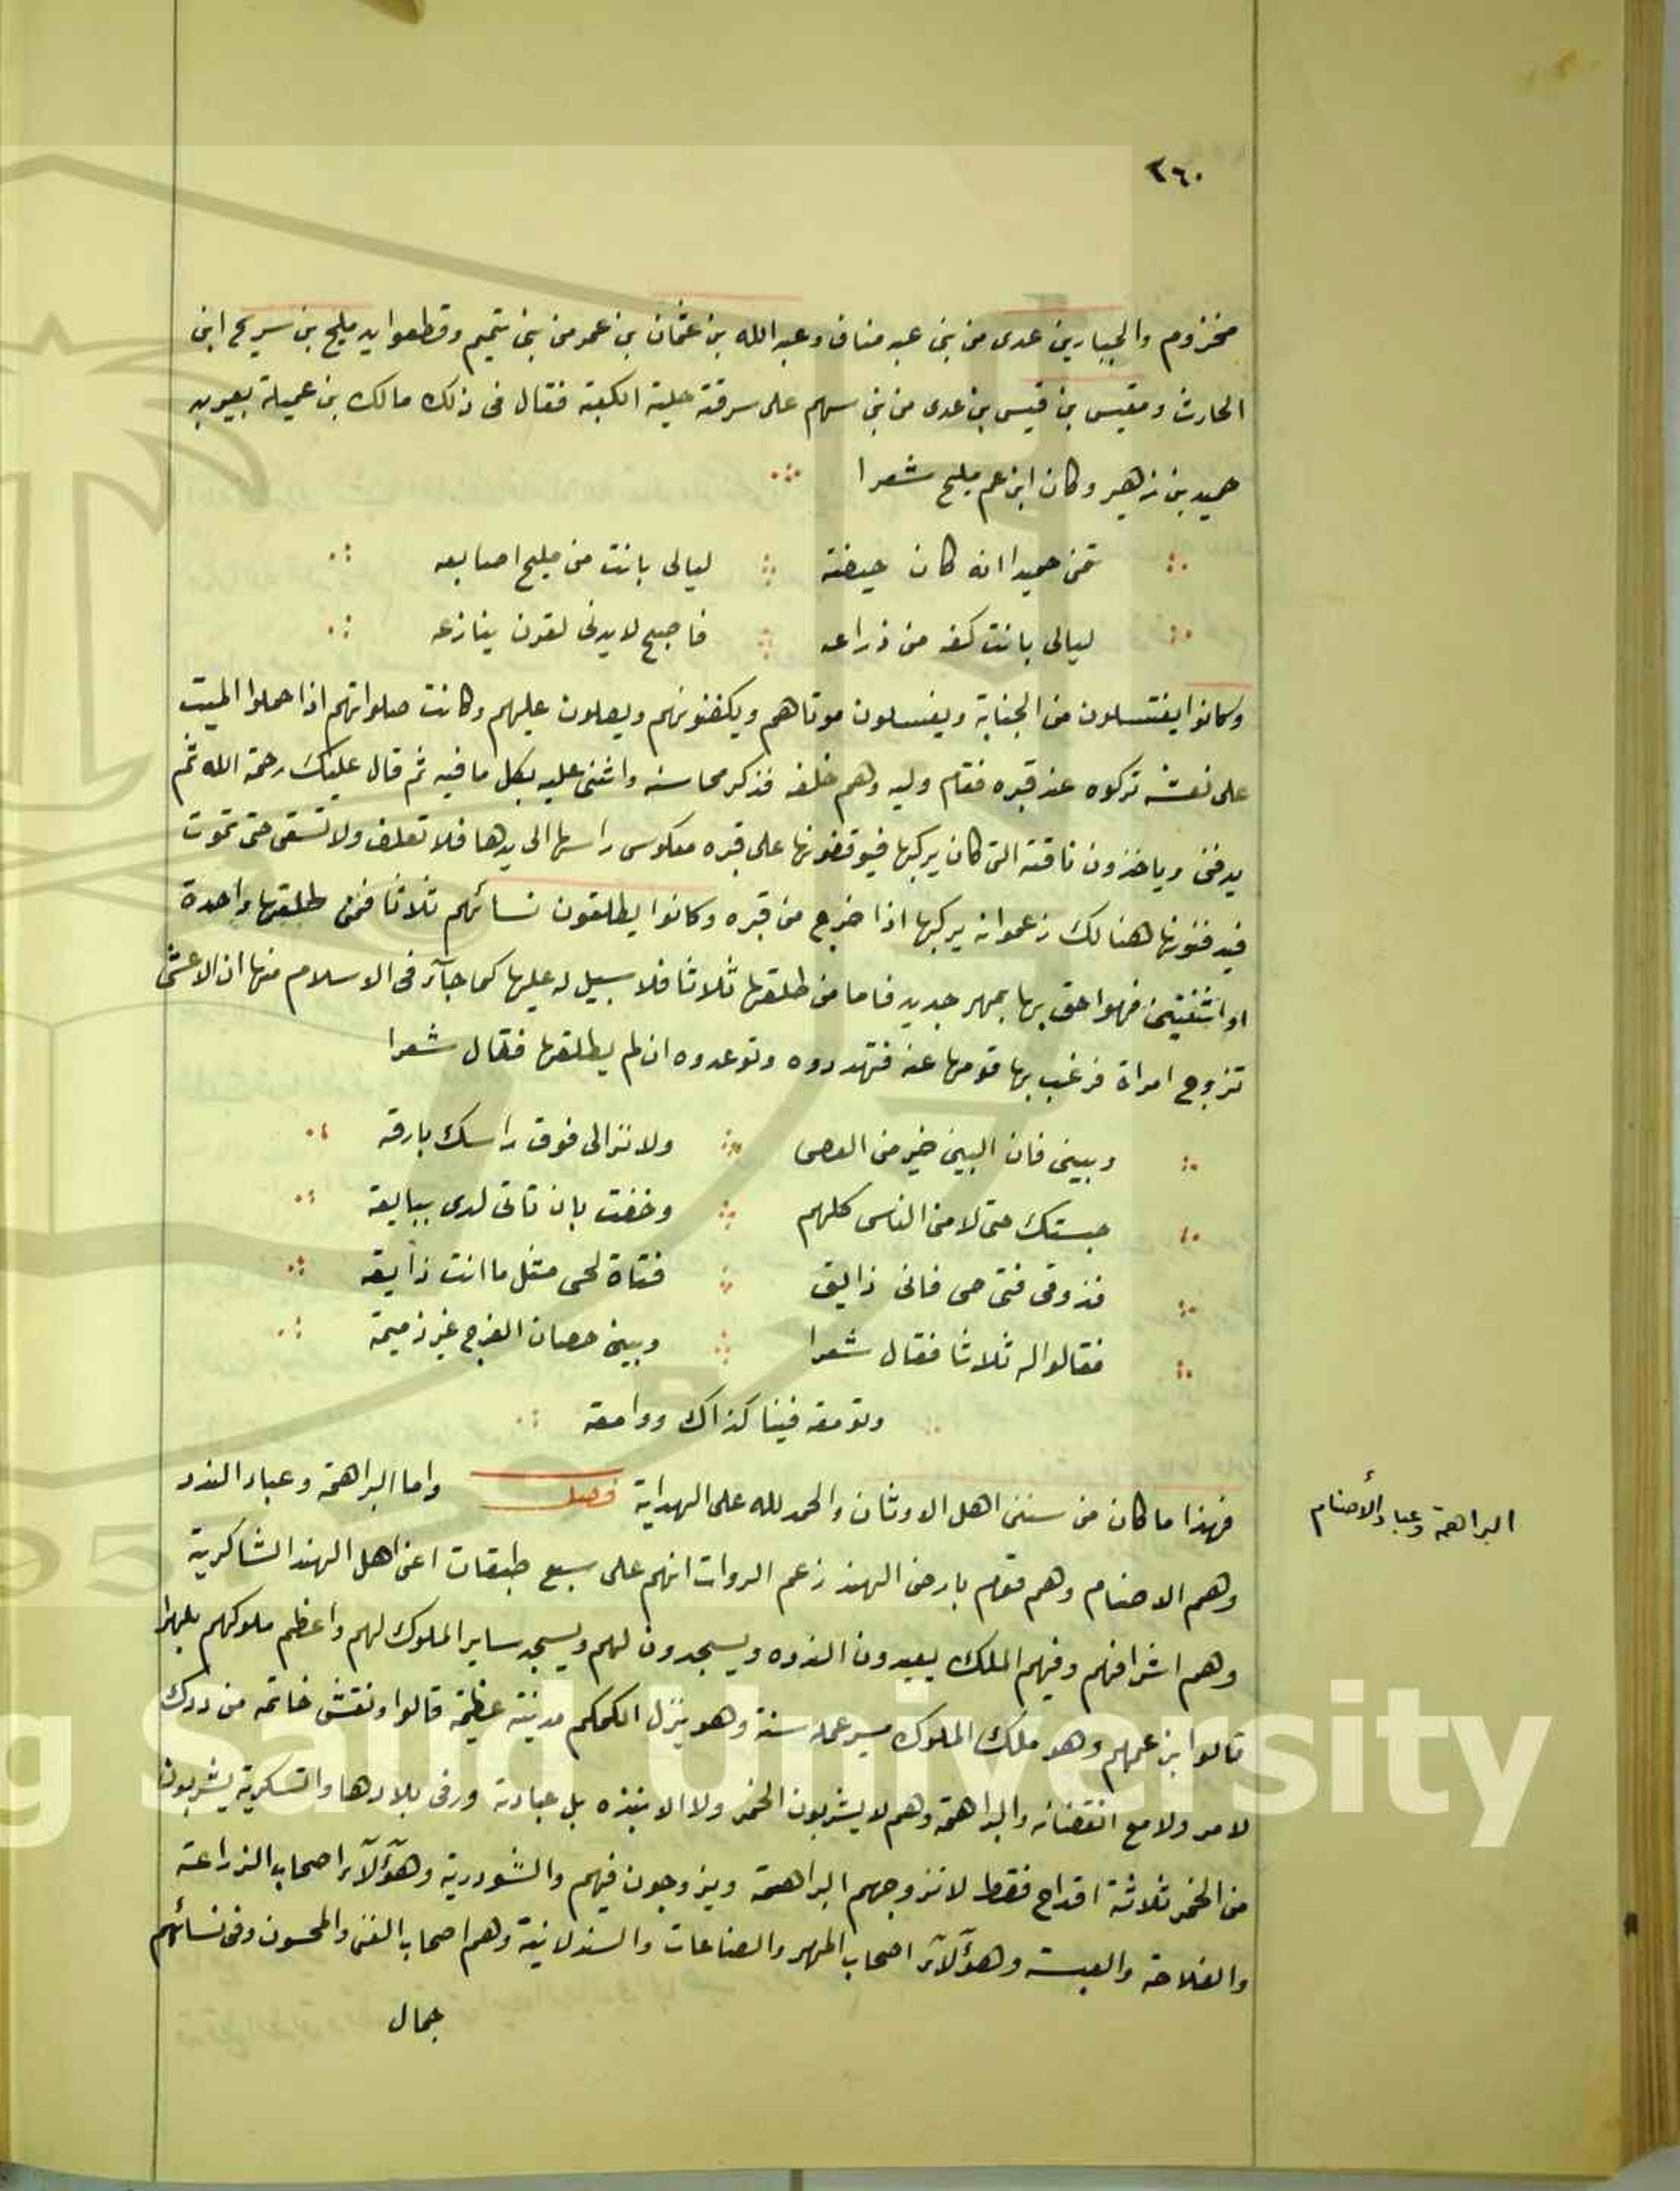 ٢٦٠
مخزوم والجبار بن عدى من بنى عبد مناف وعبد الله بن عثمان بن عمر من بنى تميم وقطعوا يد مليح بن سريح ابن
الحارث ومقيس بن قيس بن عدى من بنى سهم على سرقة حلية الكعبة فقال فى ذلك مالك بن عميلة يعير به
حميد بن زهير وكان ابن عم مليح شعرا
حميدا انه كان حيضة ليالى بانت من مليح اصابعه
ليالى بانت كفه من ذراعه فاصبح لا يدنى لقرن ينازعه
وكانوا يغتسلون من الجنابة ويغسلون موتاهم ويكفنونهم ويصلون عليهم وكانت صلواتهم اذا حملوا الميت
على نعشه تركوه عند قبره فقام وليه وهم خلفه فذكر محاسنه واثنى عليه بكل ما فيه ثم قال عليك رحمة الله ثم
يدفن وياخذون ناقته التى كان يركبها فيوقفونها على قبره معكوس راسها الى يدها فلا تعلف ولا تسقى حتى تموت
فيدفنونها هنالك زعموا انه يركبها اذا خرج من قبره وكانوا يطلقون نسائهم ثلاثا فمن طلقها واحدة
او اثنتين فهو احق بها بمهر جديد فاما من طلقها ثلاثا فلا سبيل له عليها كما جآء فى الاسلام منها ان الاعشى
تزوج امراة فرغب بها قومها عنه فتهددوه وتوعدوه ان لم يطلقها فقال شعرا
وبينى فان البين خير من العصى ولا تزالى فوق راسك بارقه
حبستك حتى لامنى الناس كلهم وخفت بان تاتى لدى ببايقه
فذوقى فتى حى فانى ذايق فتاة لحى مثل ما انت ذايقه
فقالوا له ثلاثا فقال شعرا وبينى حصان الفرج غير ذميمة
وتومقه فينا كذاك ووامقه
فهذا ما كان من سنن اهل الاوثان والحمد لله على الهداية فصل واما البراهمة وعباد الندد
البراهمة وعباد الأصنام
وهم الاصنام وهم قوم بارض الهند زعم الروات انهم على سبع طبقات اعنى اهل الهند الشاكرية
وهم اشرافهم وفيهم الملك يعبدون الندوه ويسجدون لهم ويسجد ساير الملوك لهم واعظم ملوكهم بلهرا
قالوا ابن عمهم وهو ملك الملوك مسير عمله سنة وهو ينزل الكمكم مدينة عظيمة قالوا ونقش خاتمه من ودك
لامر ولا مع انقضائه والبراهمة وهم لا يشربون الخمر ولا الانبذه بل عبادة ورقى بلادها والتسكرية يشربون
من الخمر ثلاثة اقداح فقط لا تزوجهم البراهمة ويزوجون فيهم والشودرية وهؤلآء اصحاب الزراعة
والفلاحة والعيسة وهؤلآء اصحاب المهر والصناعات والسندلانية وهم اصحاب الغنى واللحون وفى نسائهم
جمال
King Saud University
1957